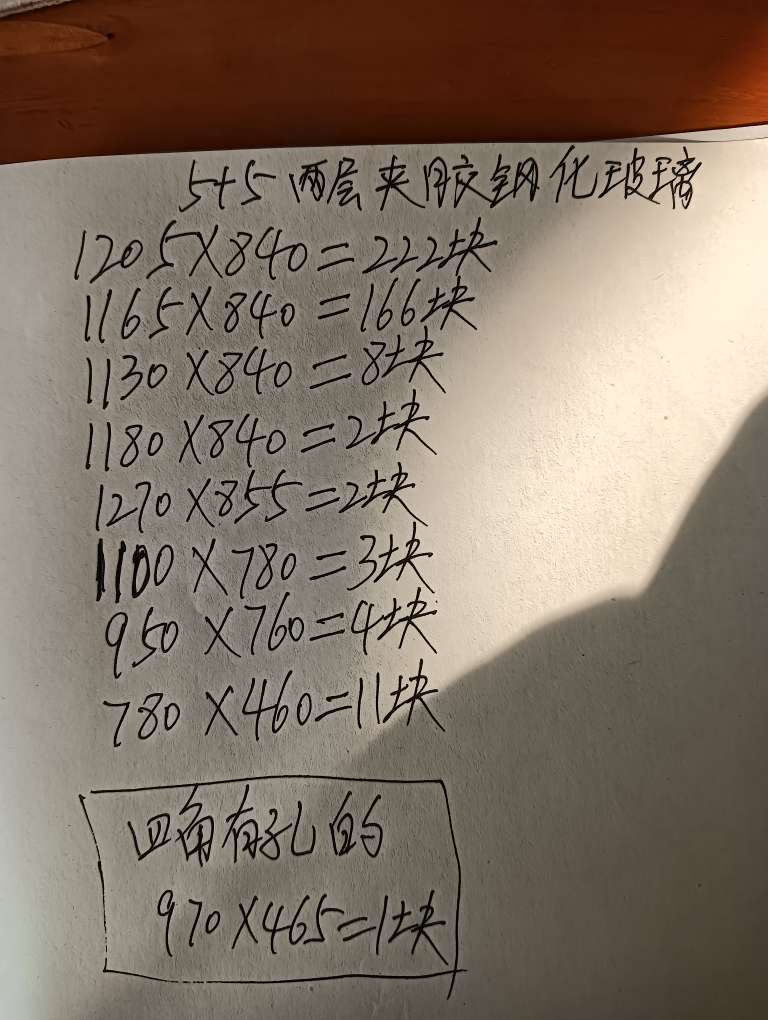 5+5两层夹胶钢化玻璃
1205×840=222块
1165×840=166块
1130×840=8块
1180×840=2块
1270×855=2块
1100×780=3块
950×760=4块
780×460=11块
四角有孔的
970×465=1块